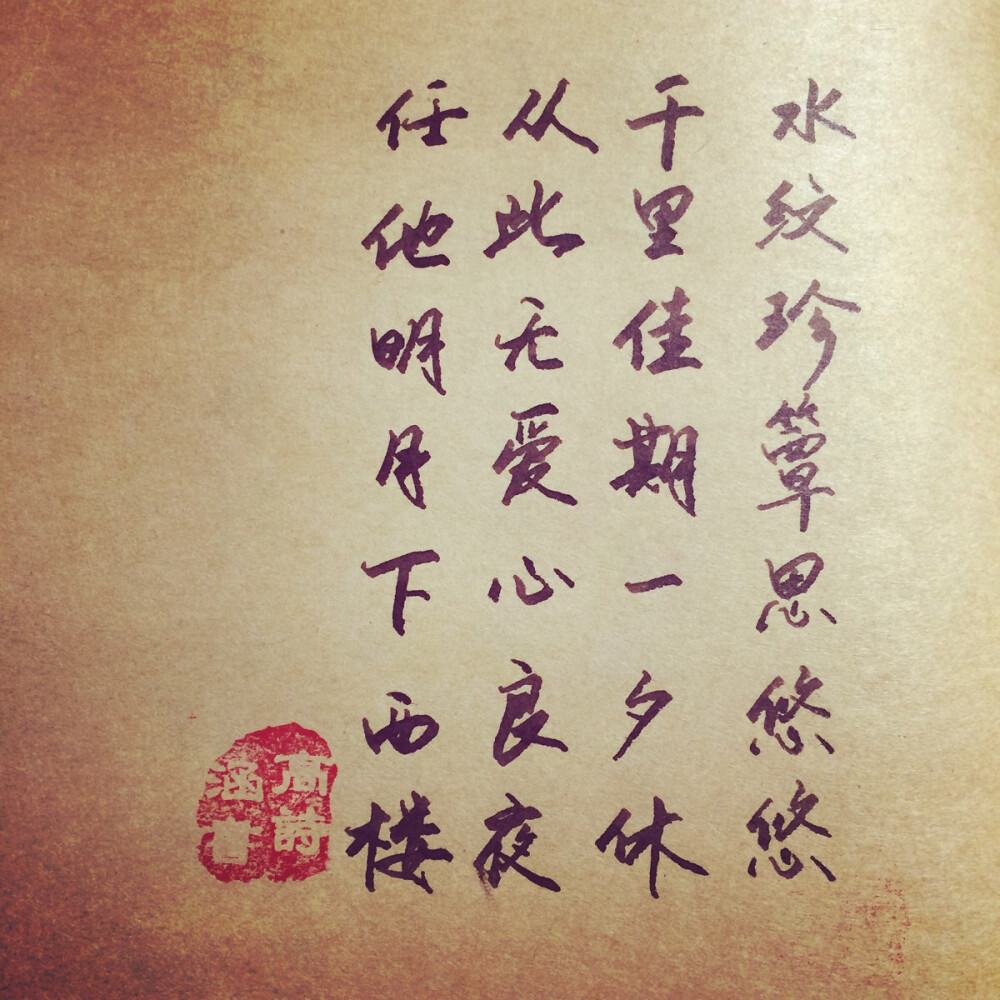 水纹珍簟思悠悠
千里佳期一夕休
从此无爱心良夜
任他明月下西楼
高诗
涵书